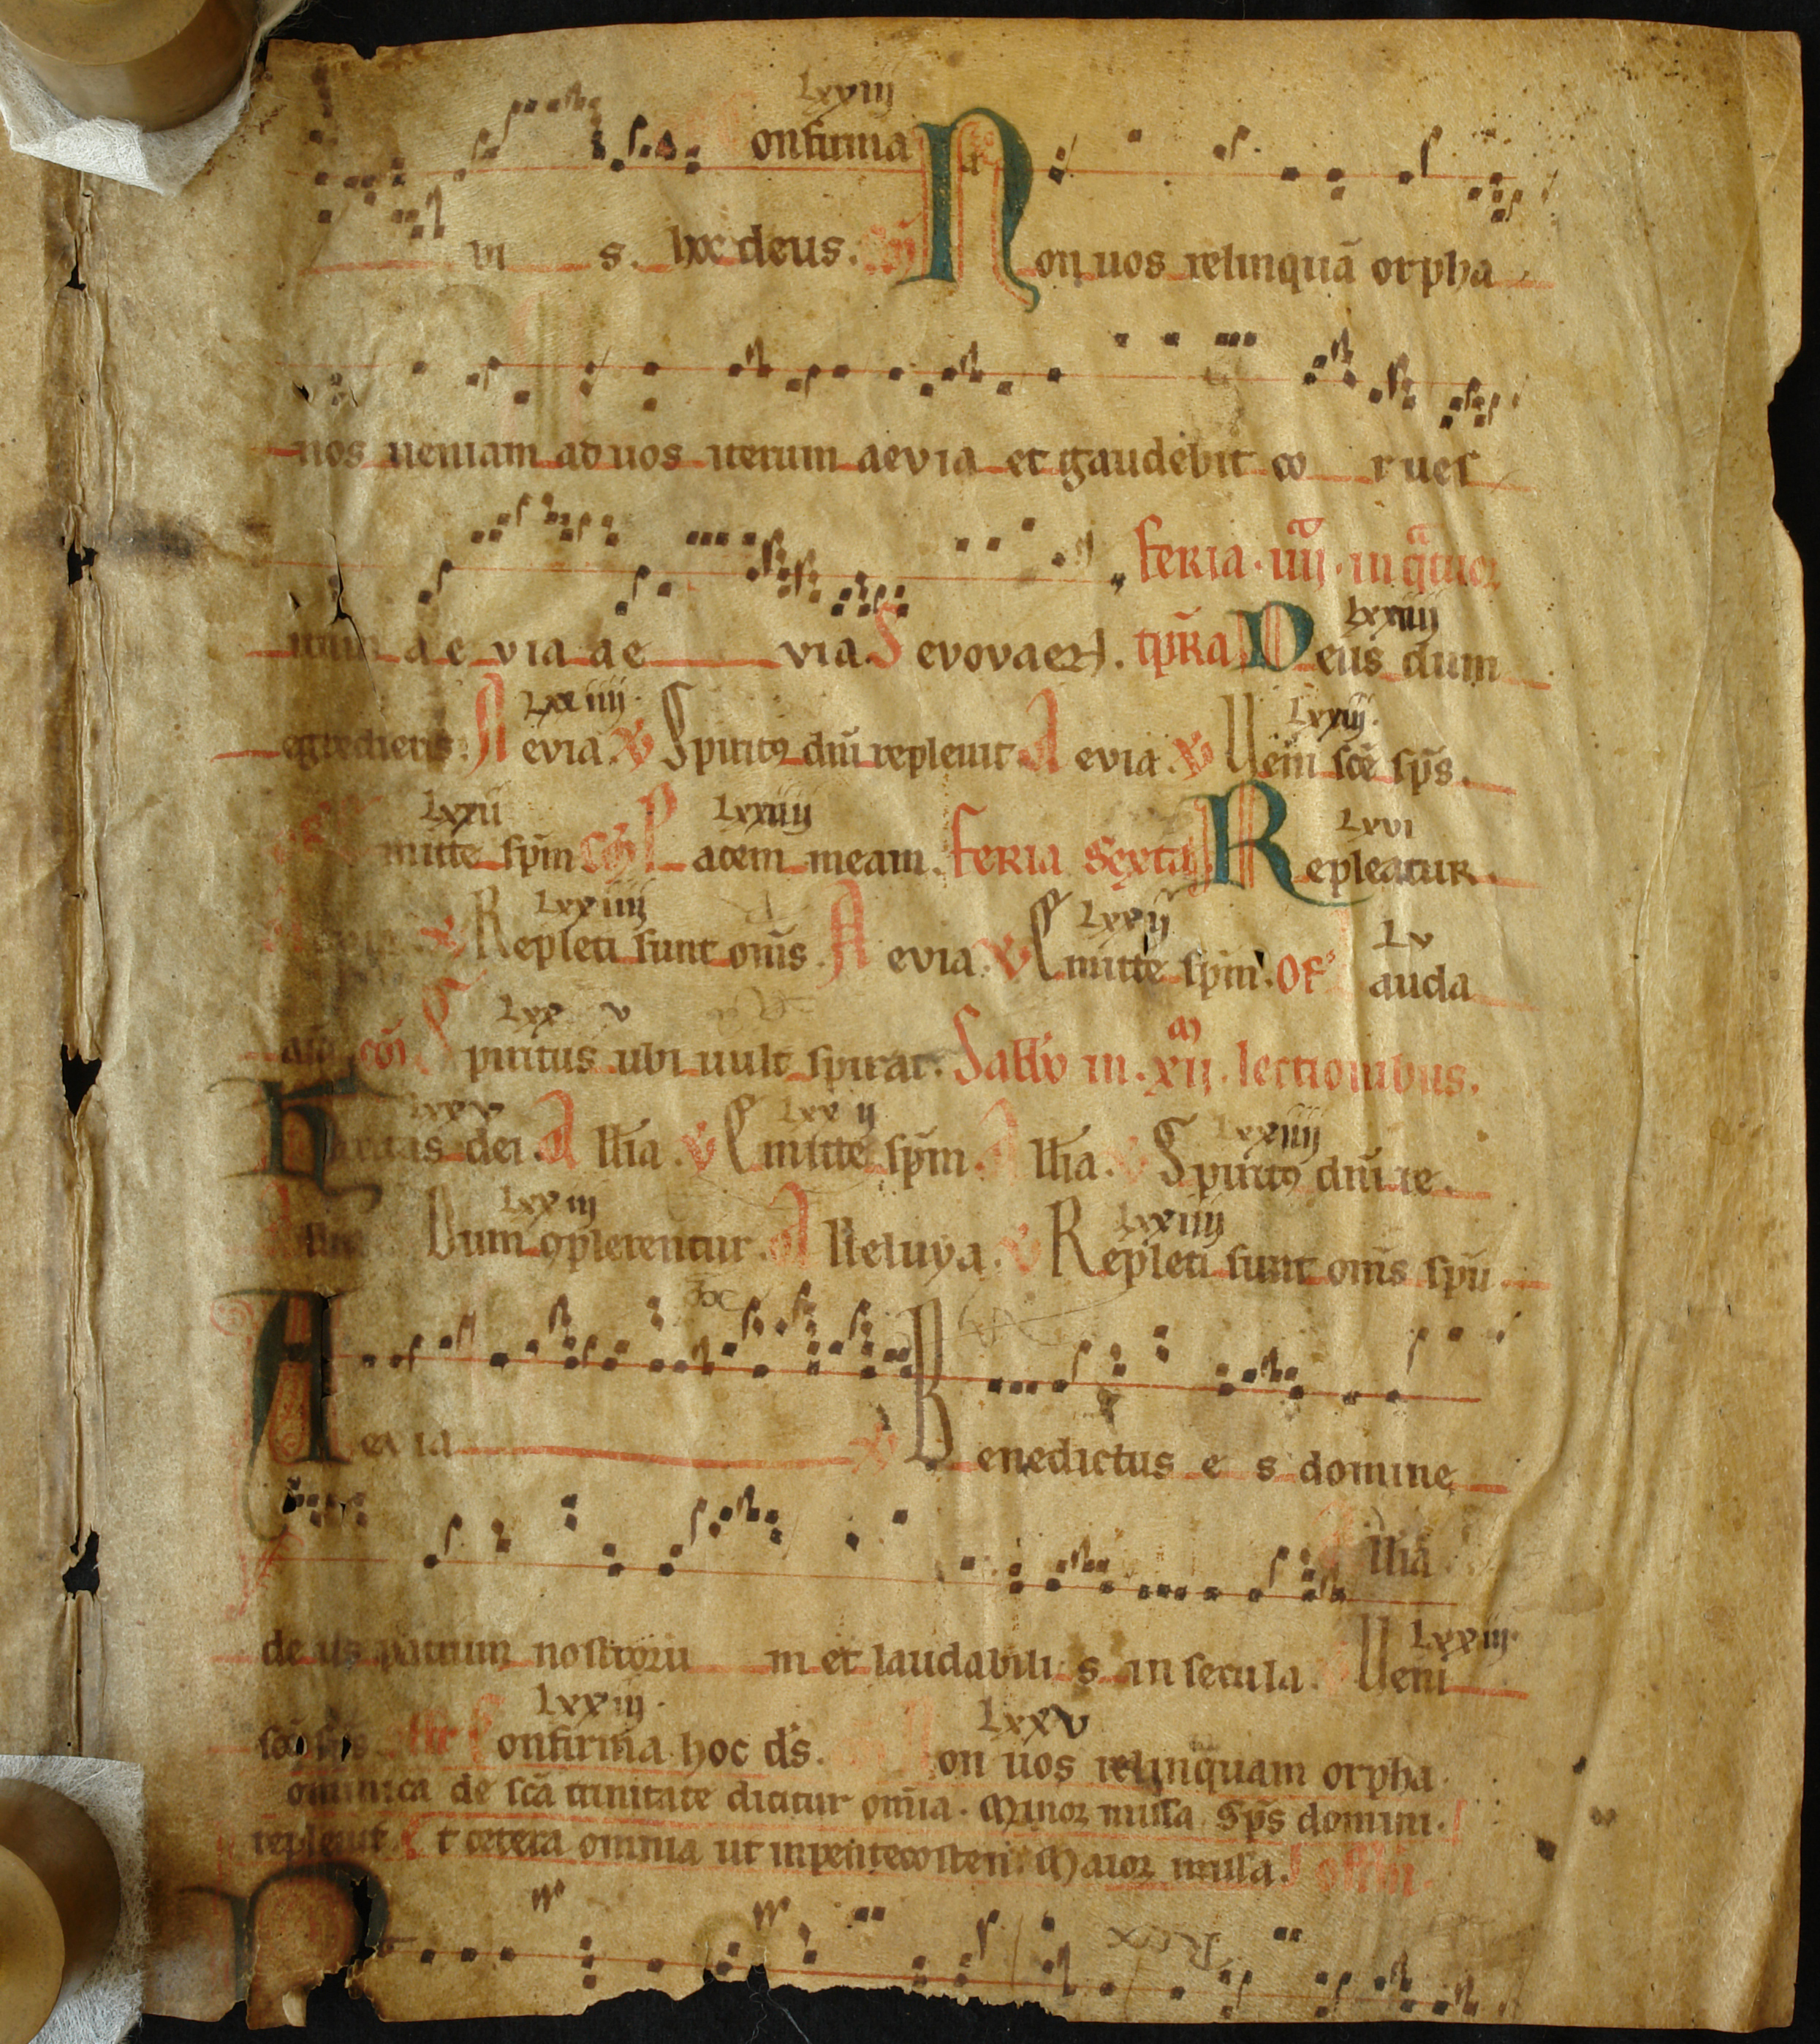 Lxxiij
onfirma
vi s. hoc deus. Non uos relinquā orpha
nos ueniam ad uos iterum aevia et gaudebit co r ues
feria · iiij · in
trum a e via a e via. Sevovaen. tp̄ra Deus dum
Lxxiiij
egredieris. Aevia. Spiritꝯ dn̄i repleuit Aevia. Ueni sc̄e sp̄s.
Lxxiiij. Lxxiij.
mitte sp̄m Pacem meam. feria sexta Repleatur.
Lxxii Lxxiiij Lxvi
Repleti sunt om̄s. Aevia. Emitte sp̄m. Of auda
Lxxiiij Lxxij Lv
cōi Spiritus ubi uult spirat. Sabb̄o in . xij . lectionibus.
Lxx v
Karitas dei. All̄ia. Emitte sp̄m. All̄ia. Spiritꝯ dn̄i re.
Lxxv Lxx ij Lxxiiij
Dum ꝯplerentur. Alleluya. Repleti sunt om̄s sp̄u
Lxxiij Lxxiiij
Aevia Benedictus e s domine
ll̄ia
de us patrum nostroru m et laudabili s in secula. Ueni
Lxxiij.
Confirma hoc d̄s. Non uos relinquam orpha
Lxxiij. Lxxv
ominica de sc̄a trinitate dicitur om̄ia. Minor missa Sp̄s domini.
repleuit Et cetera omnia ut in pentecosten. Maior missa.